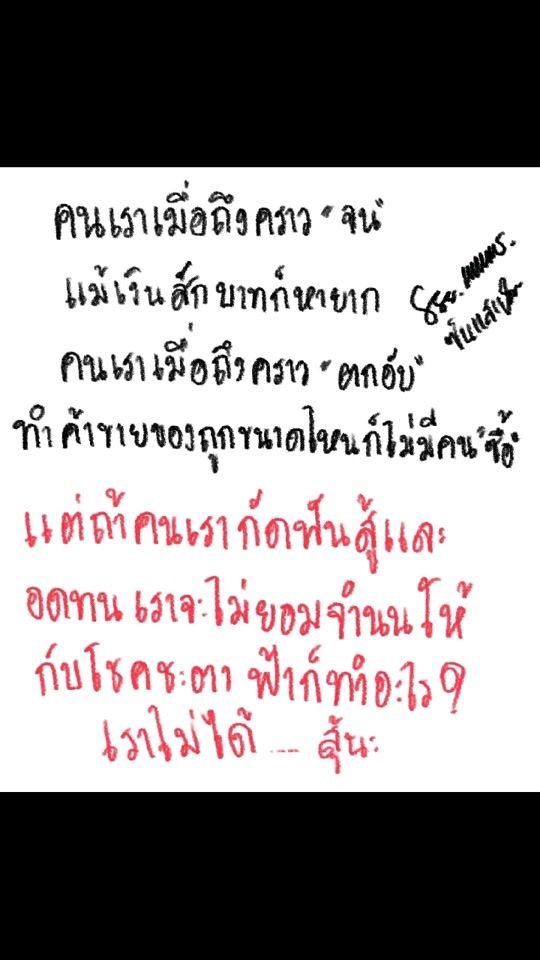 คนเราเมื่อถึงคราว "จน"
แม้เงินสักบาทก็หายาก
คนเราเมื่อถึงคราว "ตกอับ"
ทำค้าขายของถูกขนาดไหนก็ไม่มีคน"ซื้อ"
แต่ถ้าคนเรากัดฟันสู้และ
อดทนเราจะไม่ยอมจำนนให้
กับโชคชะตา ฟ้าก็ทำอะไร?
เราไม่ได้ .... สู้นะ